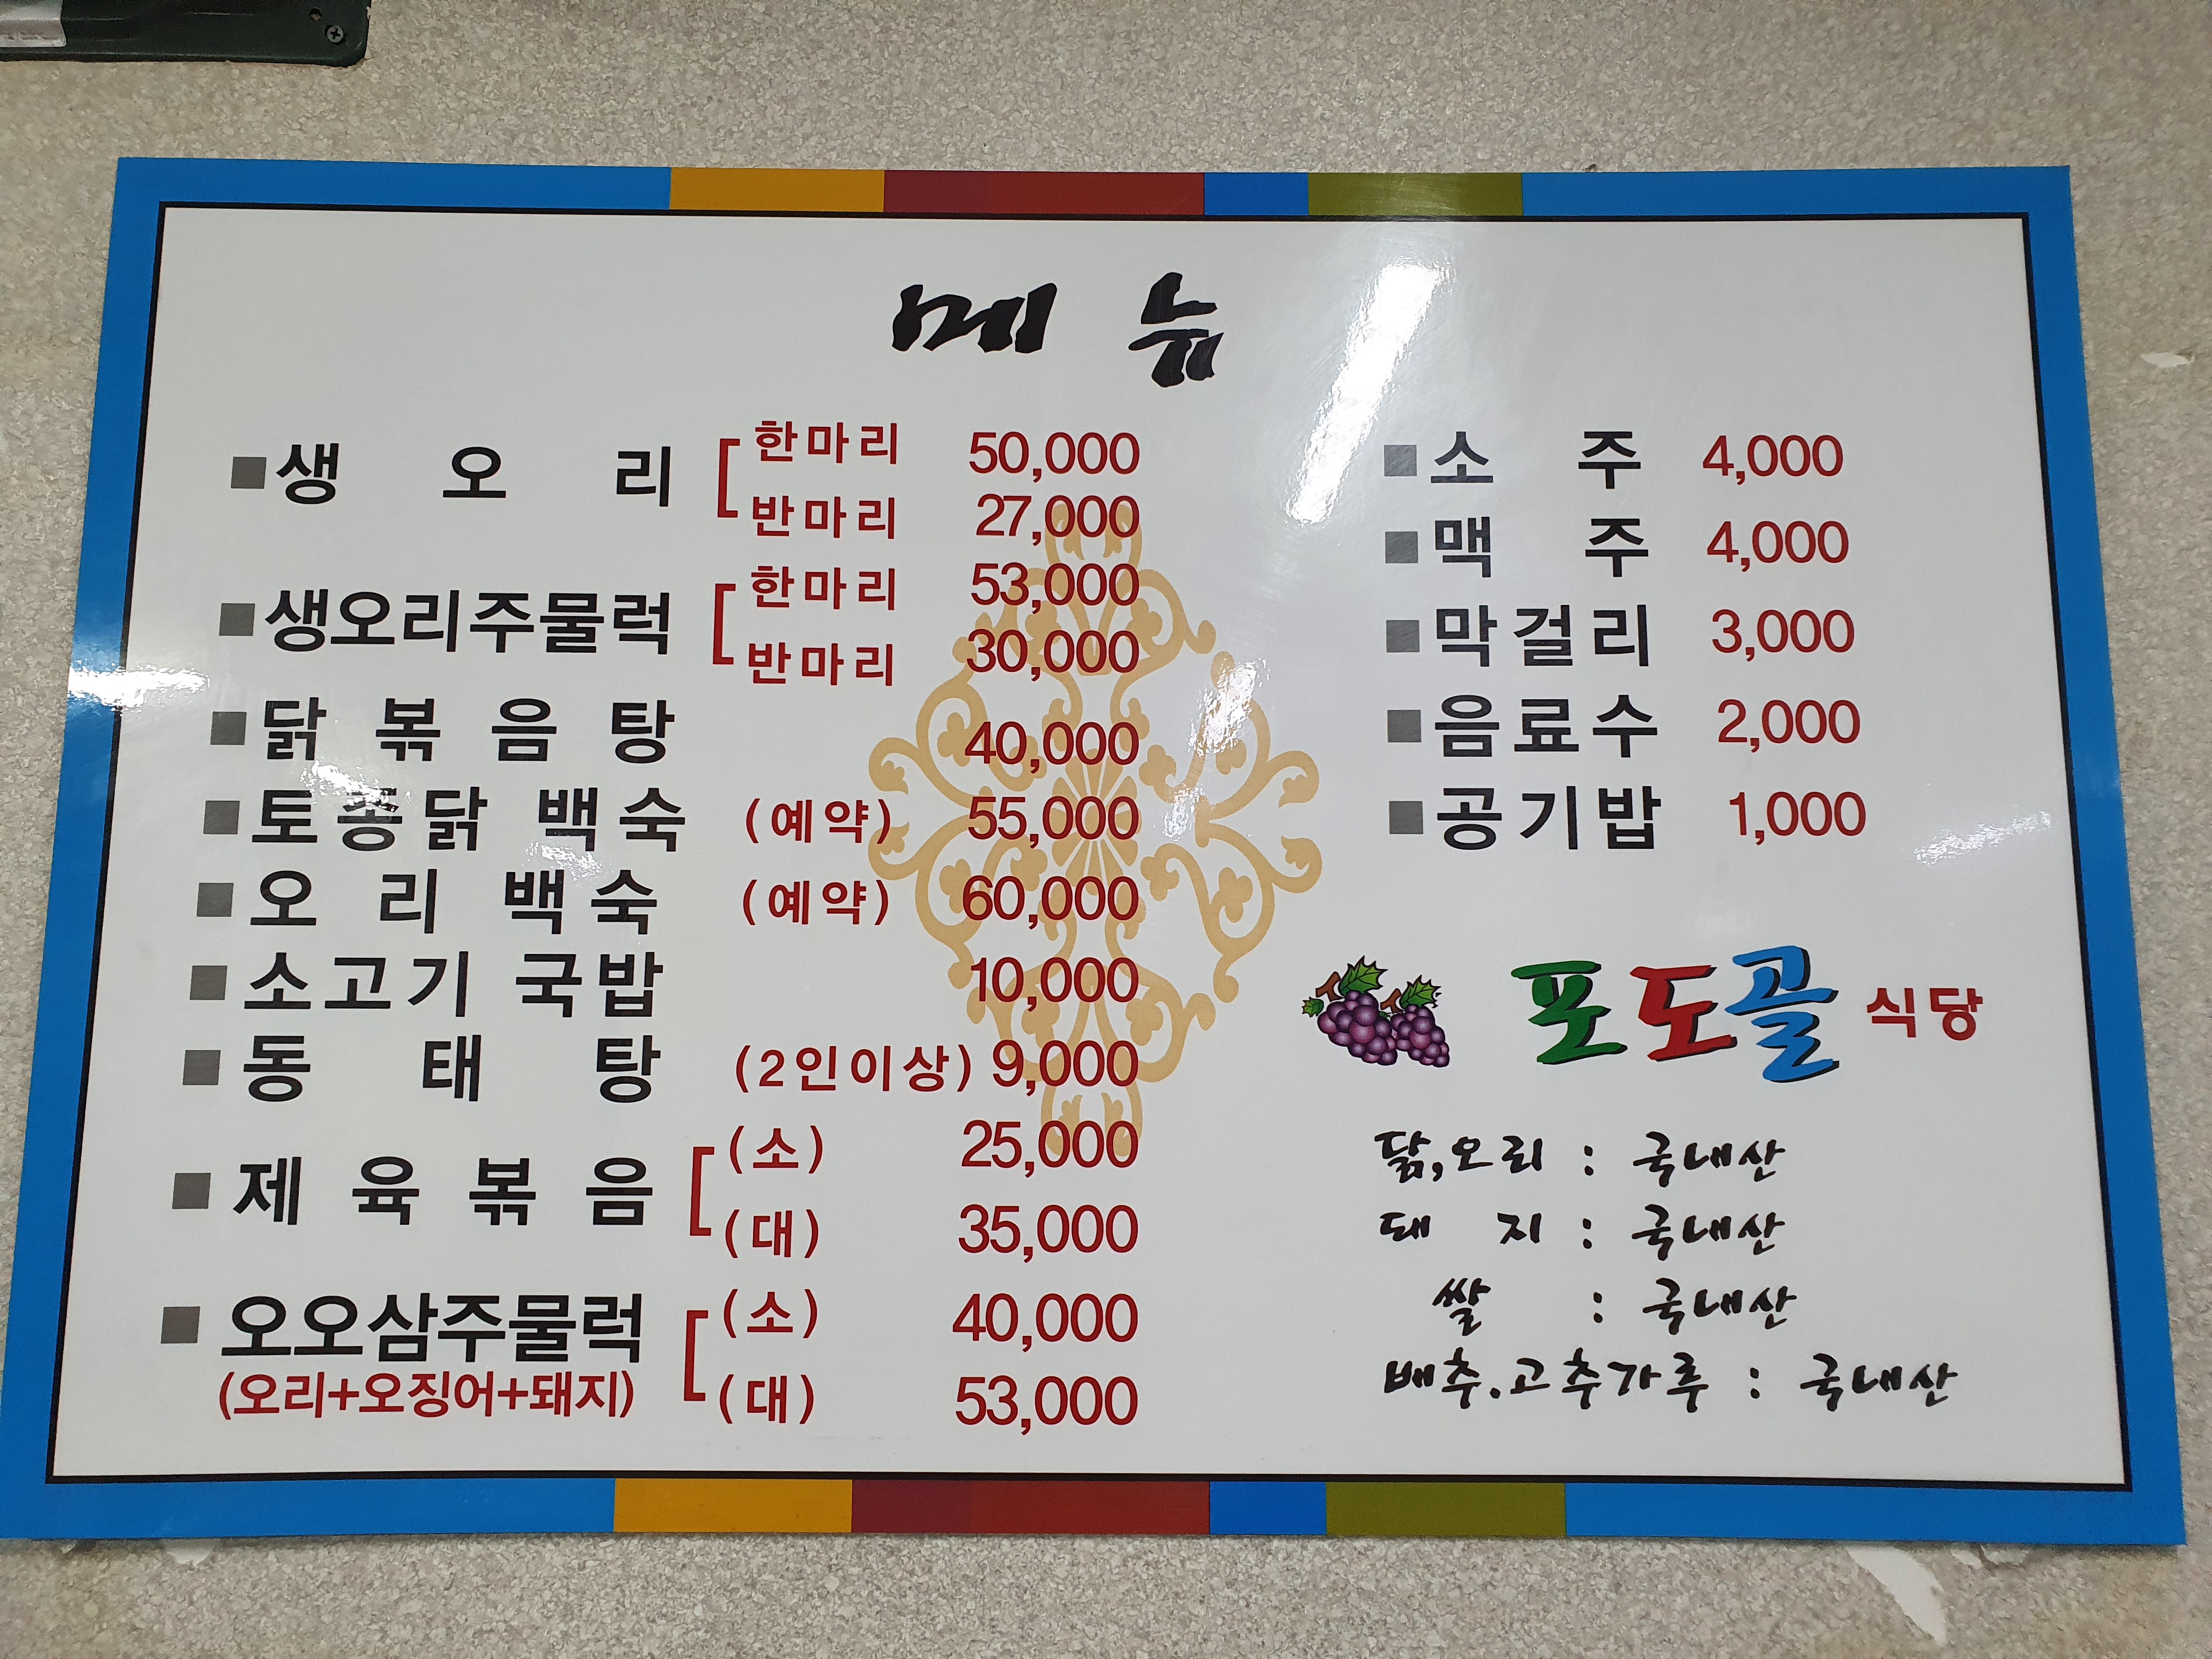 메뉴
■생오리 한마리 50,000
반마리 27,000
■생오리주물럭 한마리 53,000
반마리 30,000
■닭볶음탕 40,000
■토종닭 백숙 (예약) 55,000
■오리 백숙 (예약) 60,000
■소고기 국밥 10,000
■동태탕 (2인이상) 9,000
■제육볶음 (소) 25,000
(대) 35,000
■오오삼주물럭 (소) 40,000
(오리+오징어+돼지) (대) 53,000
■소주 4,000
■맥주 4,000
■막걸리 3,000
■음료수 2,000
■공기밥 1,000
포도골 식당
닭,오리 : 국내산
돼지 : 국내산
쌀 : 국내산
배추.고추가루 : 국내산